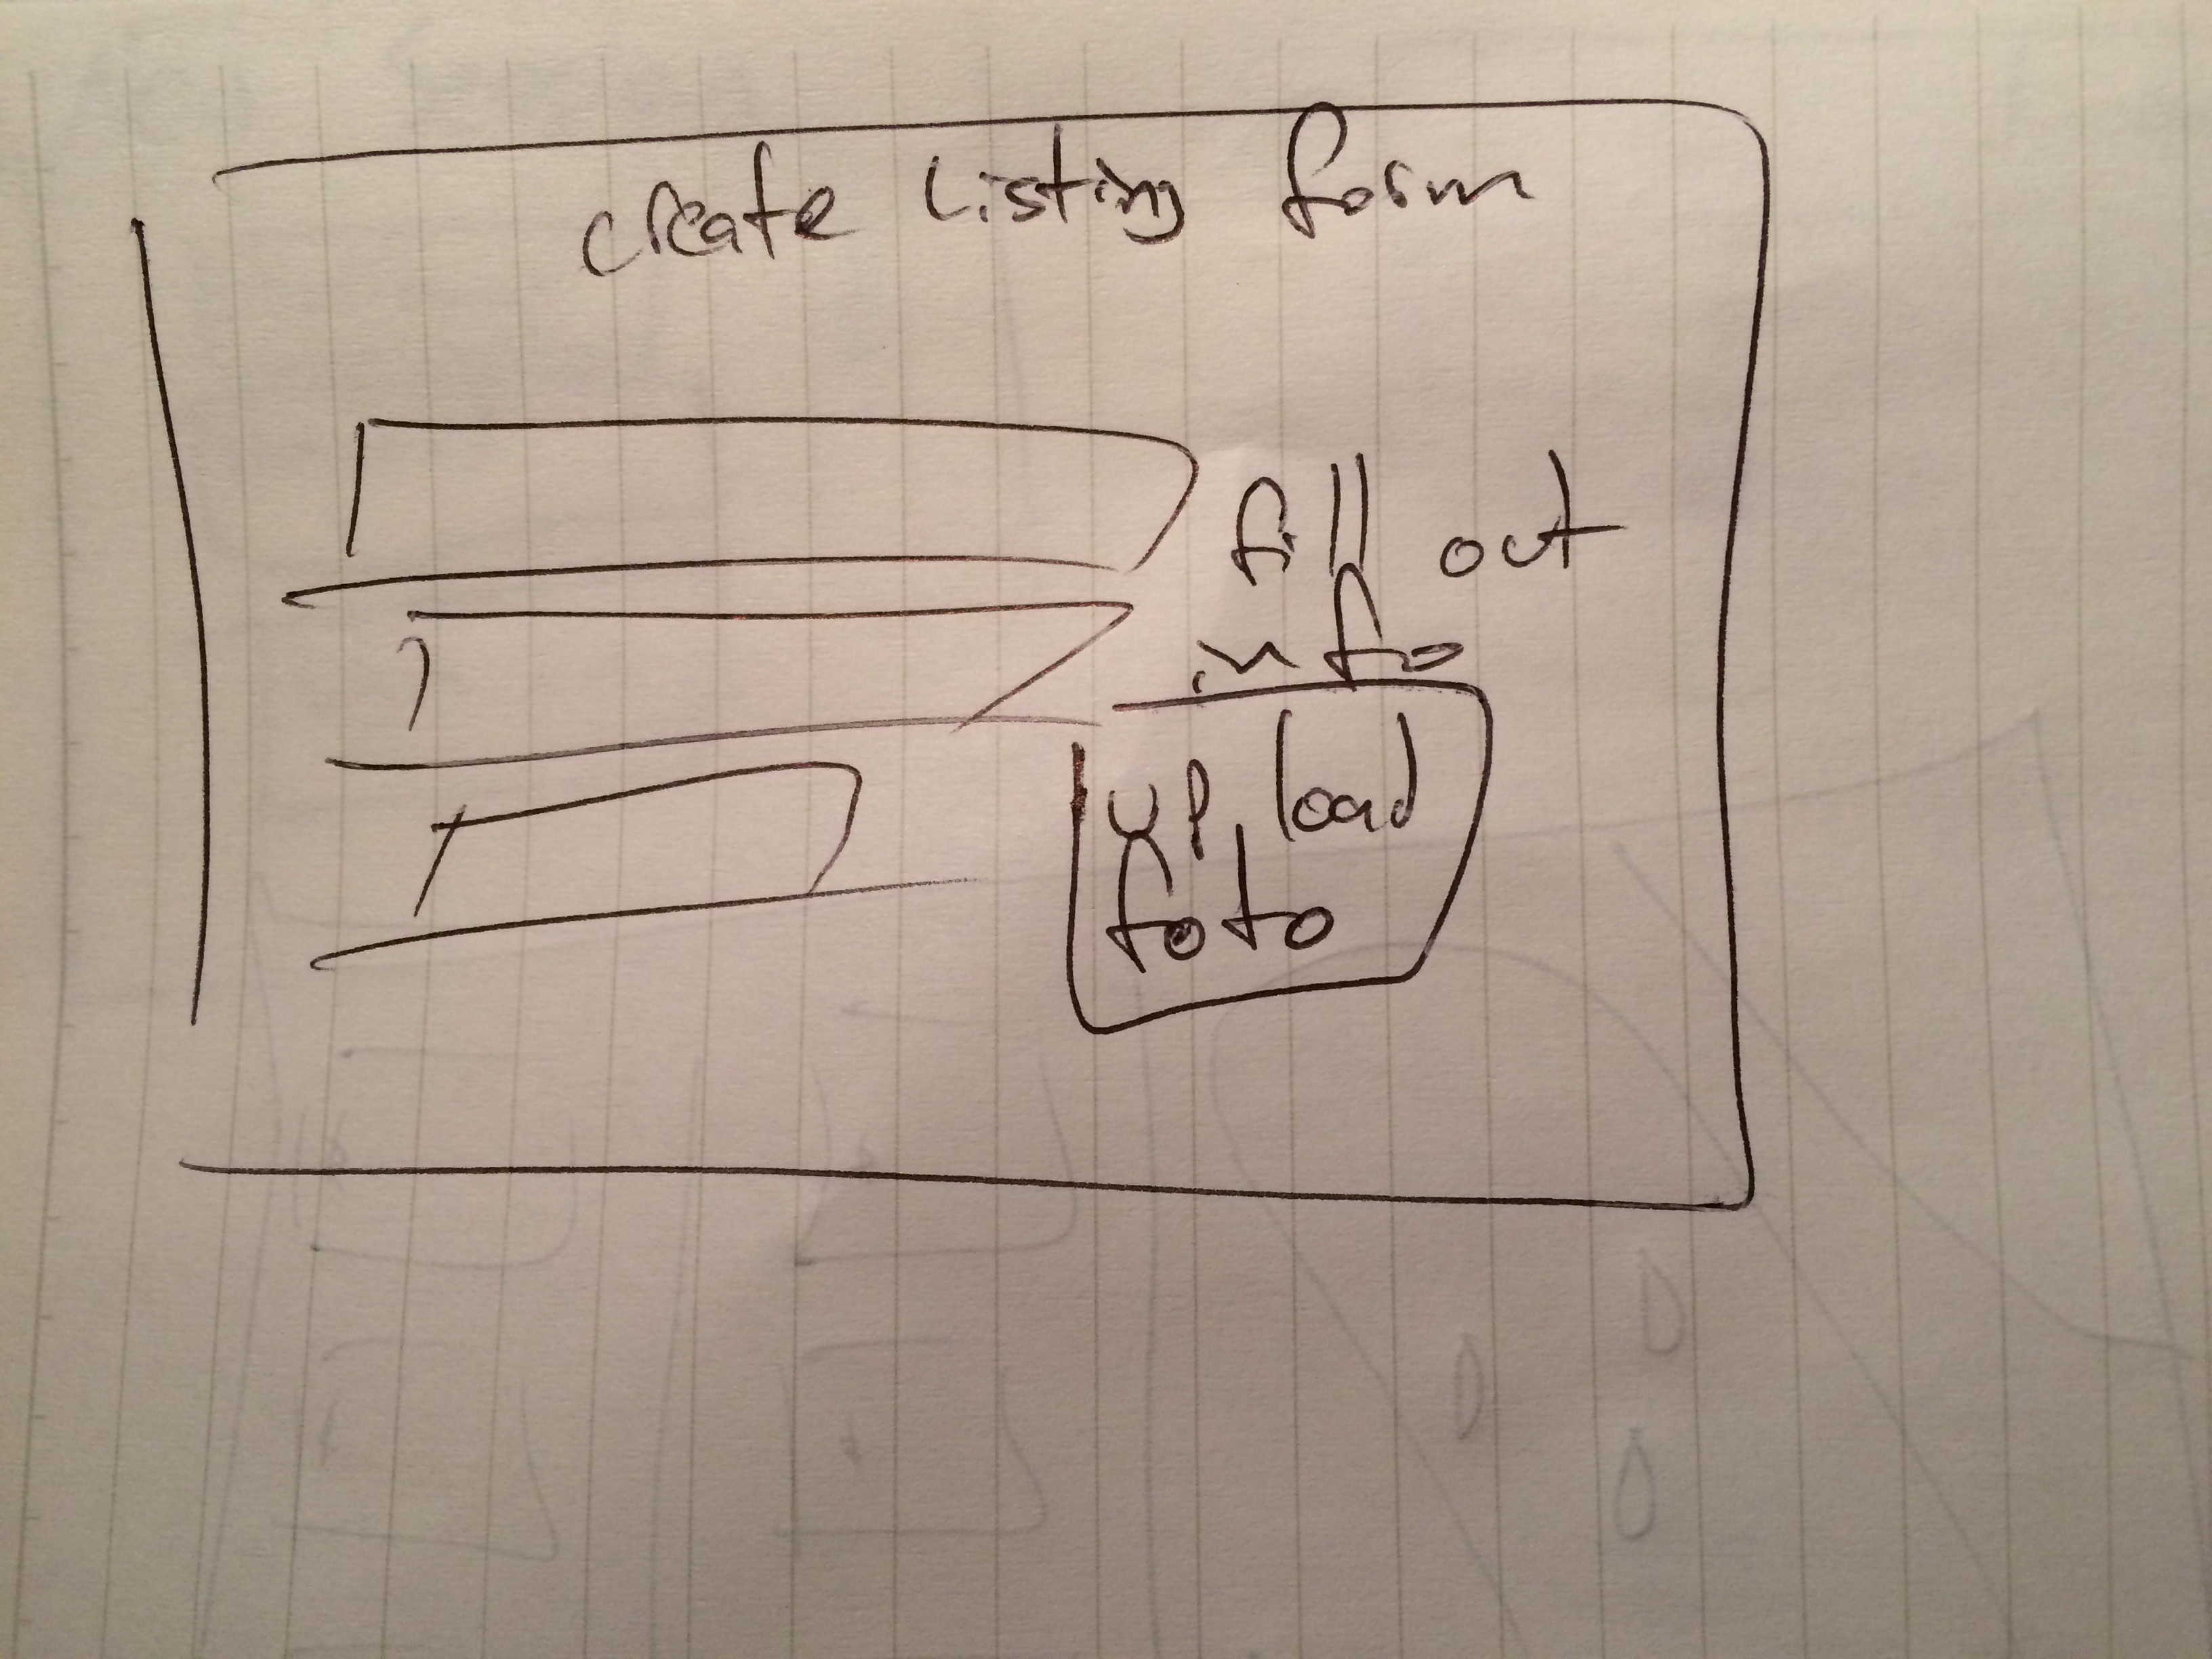 create Listing form
fill out
info
up load
foto